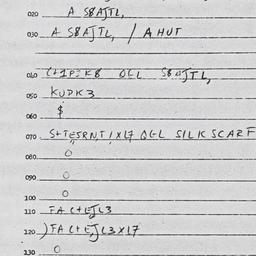 020 A S8AJTL,
030 A S8AJTL, / A HUT
040 OEL S8AJTL,
050 KUDK3
060 $
070 S+TESRNT1X17 OEL SILK SCARF
080 O
090 O
100 O
110 FAC+EJL3
120 )FAC+EJL3X17
130 O